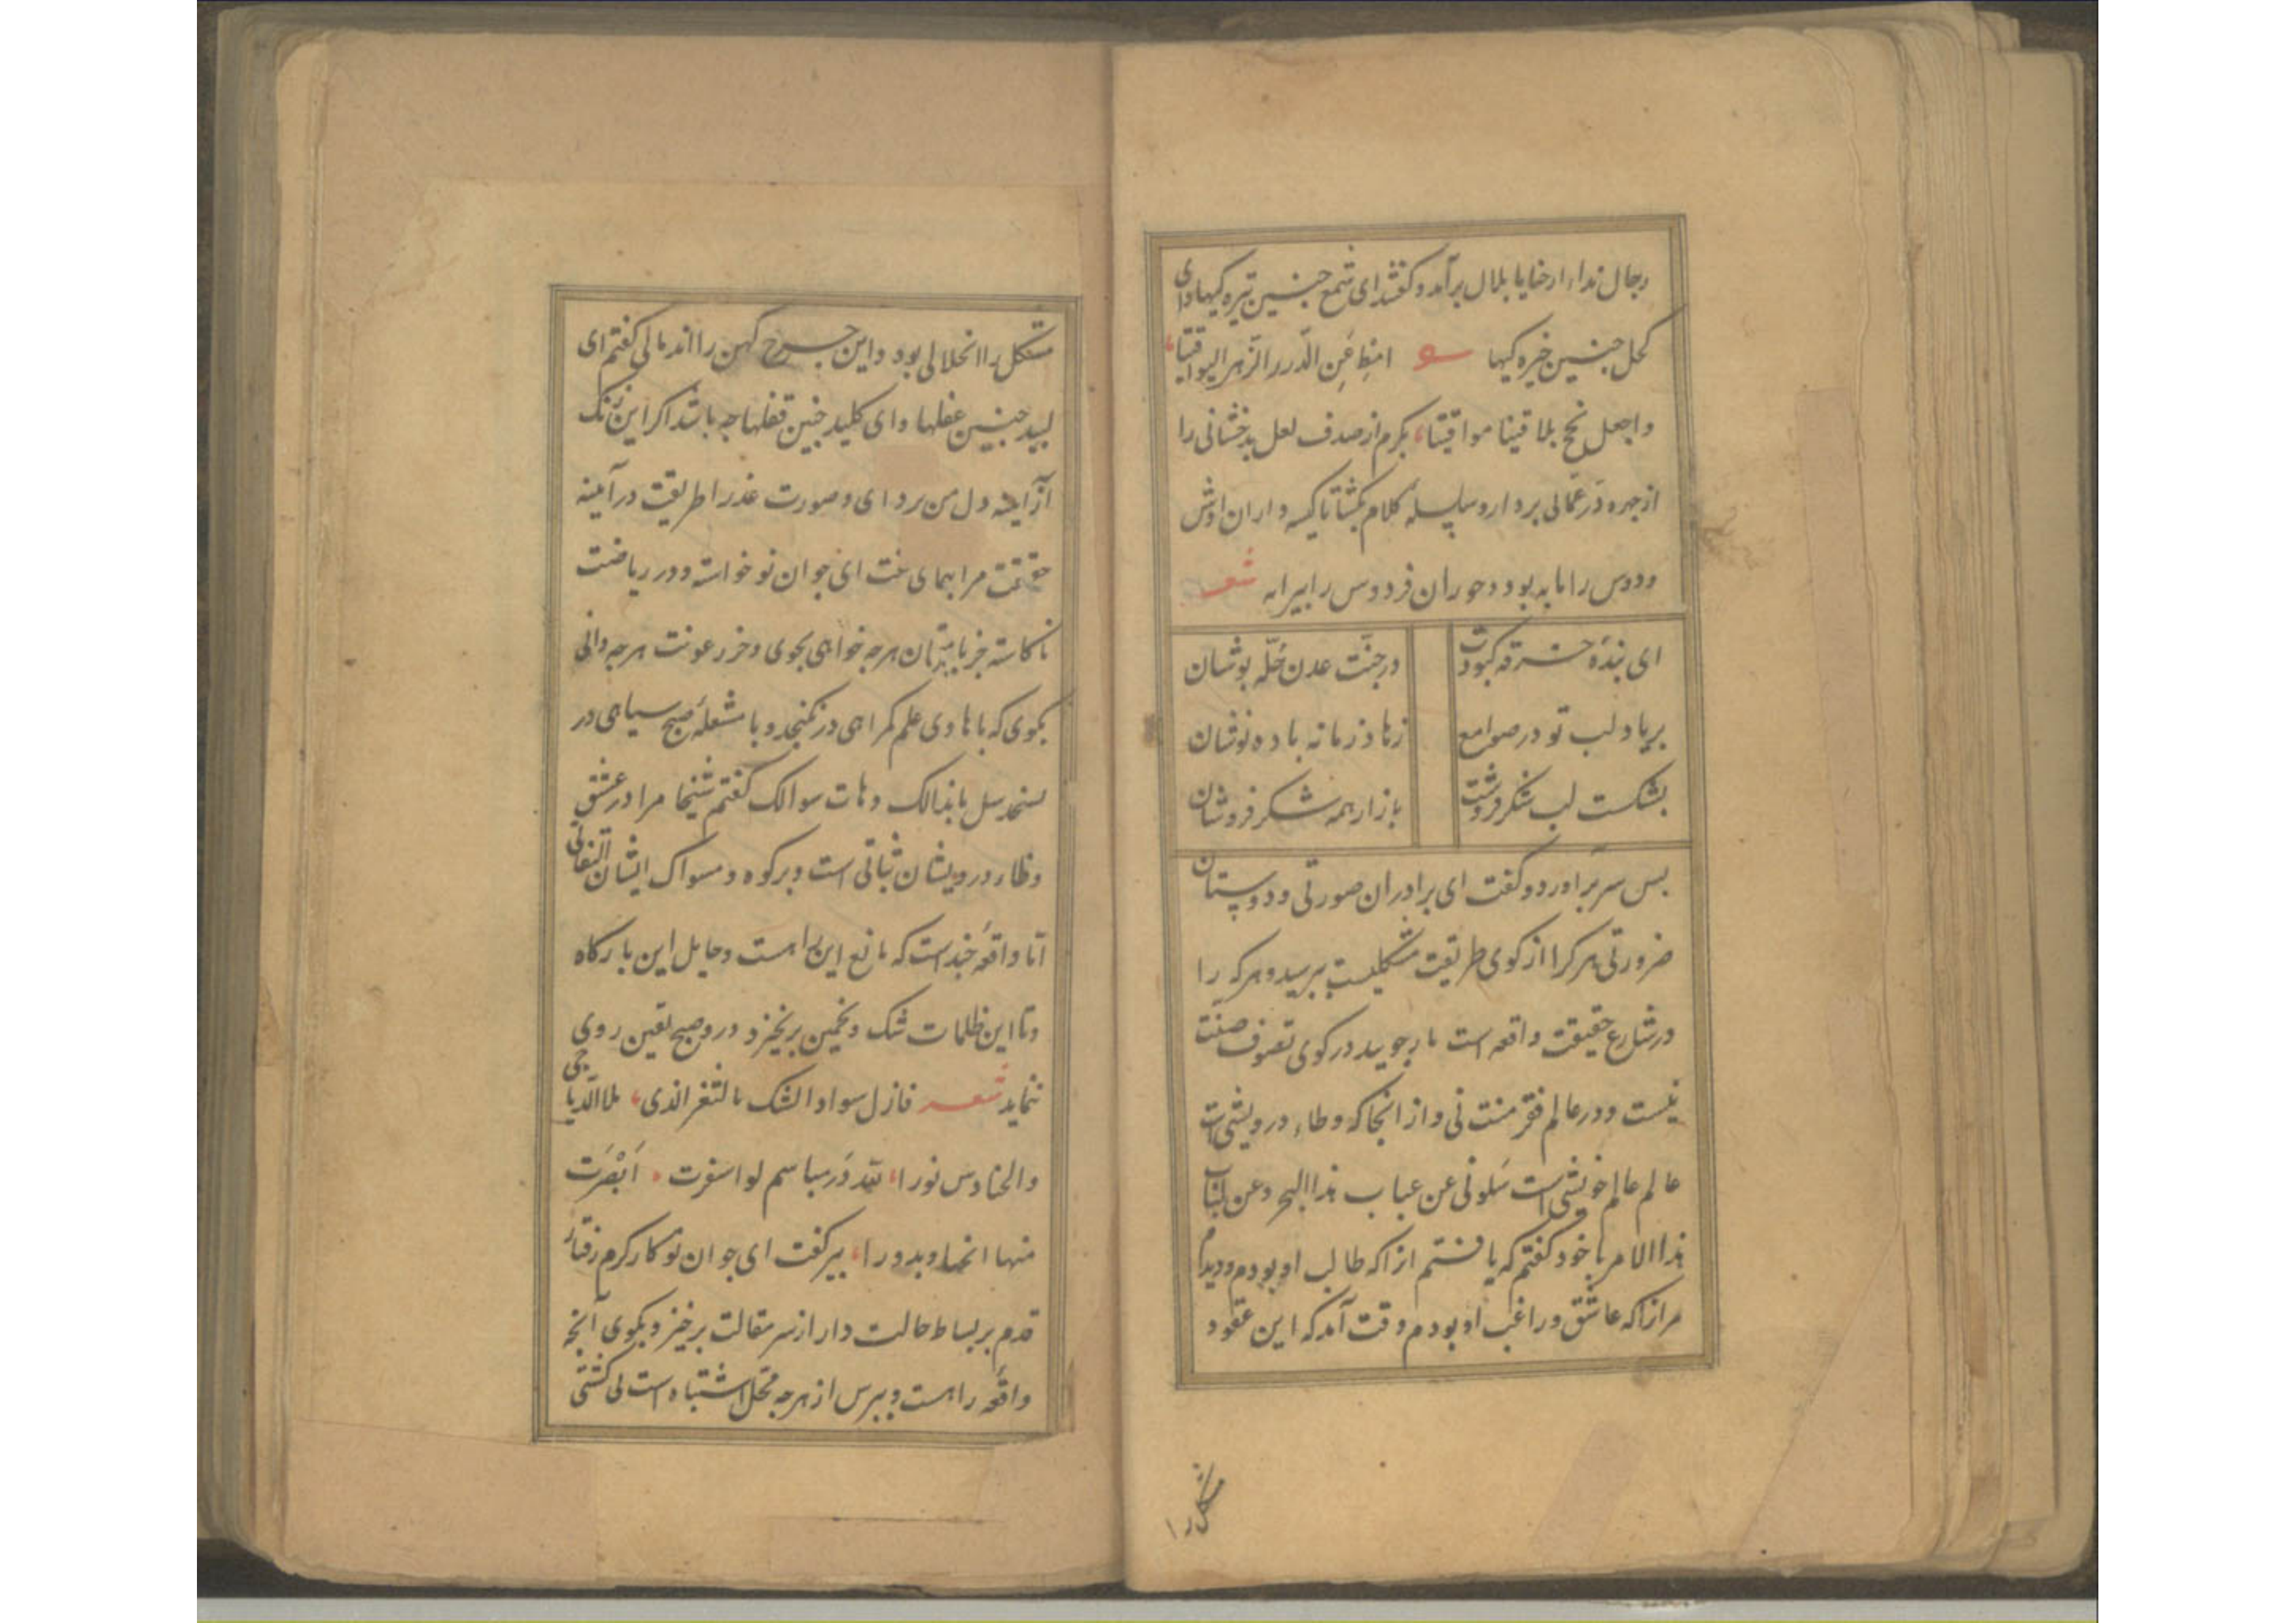 رجال نداء ارحنا یا بلال برآمد و گفتند ای شمع چنین تیره کیها و ای
کحل چنین خیره کیها شعر امط عن الدرر الزهر الیواقیتا
واجعل لحج بلاقینا مواقیتا بکرم از صدف لعل بدخشانی را
از چهره در عمانی بردار و سلسله کلام بکشا تا کیسه داران اوش
و دوس را مایه بود و حوران فردوس را پیرایه شعر
ای بنده خرقه کبودت در جنت عدن حله پوشان
بر یاد لب تو در صوامع زهاد زمانه باده نوشان
بشکست لب شکرفروشت بازار همه شکر فروشان
بس سر برآورد و گفت ای برادران صورتی و دوستان
ضرورتی هر کرا از کوی طریقت مشکلیست بپرسید و هر که را
در شارع حقیقت واقعه است باز جویید در کوی تصوف ضنت
نیست و در عالم فقر منت نی و از انجا که وطاء درویشی است
عالم عالم خویشی است سلونی عن عباب هذا البحر و عن لباب
هذا الامر با خود گفتم که یافتم انرا که طالب او بودم و دیدم
مرانرا که عاشق و راغب او بودم وقت آمد که این عقود
مشکل را
مشکل را انحلالی بود و این جرح کهن را اندمالی گفتم ای
لبید چنین عقلها و ای کلید چنین قفلها چه باشد اکر این زنک
از آینه دل من بزدای و صورت عذرا طریقت در آینه
حقیقت مرا بنمای گفت ای جوان نوخواسته و در ریاضت
ناکاسته جز با هرچه خواهی بجوی و جز رعونت هرچه دانی
بکوی که با هادی علم کمراهی در نکنجد و با مشعله صبح سیاهی در
نسنجد سل ما بدالک و هات سوالک گفتم شیخا مرا در عشق
وطاء درویشان ثباتی است و بر کوه و مسواک ایشان التفاتی
اما واقعه چند است که مانع این راهست و حایل این بارکاه
و تا این ظلمات شک و تخمین برنخیزد و در و صبح یقین روی
ننماید شعر فازل سواد الشک بالثغر الذی جلا الدیاجی
والحنادس نورا لله در مباسم لو اسفرت ابصرت
منها انجما و بدورا پیر گفت ای جوان نوکار کرم رفتار
قدم بر بساط حالت دار از سر مقالت برخیز و بکوی آنچه
واقعه راهست و بپرس از هرچه محل اشتباه است لی کشتی